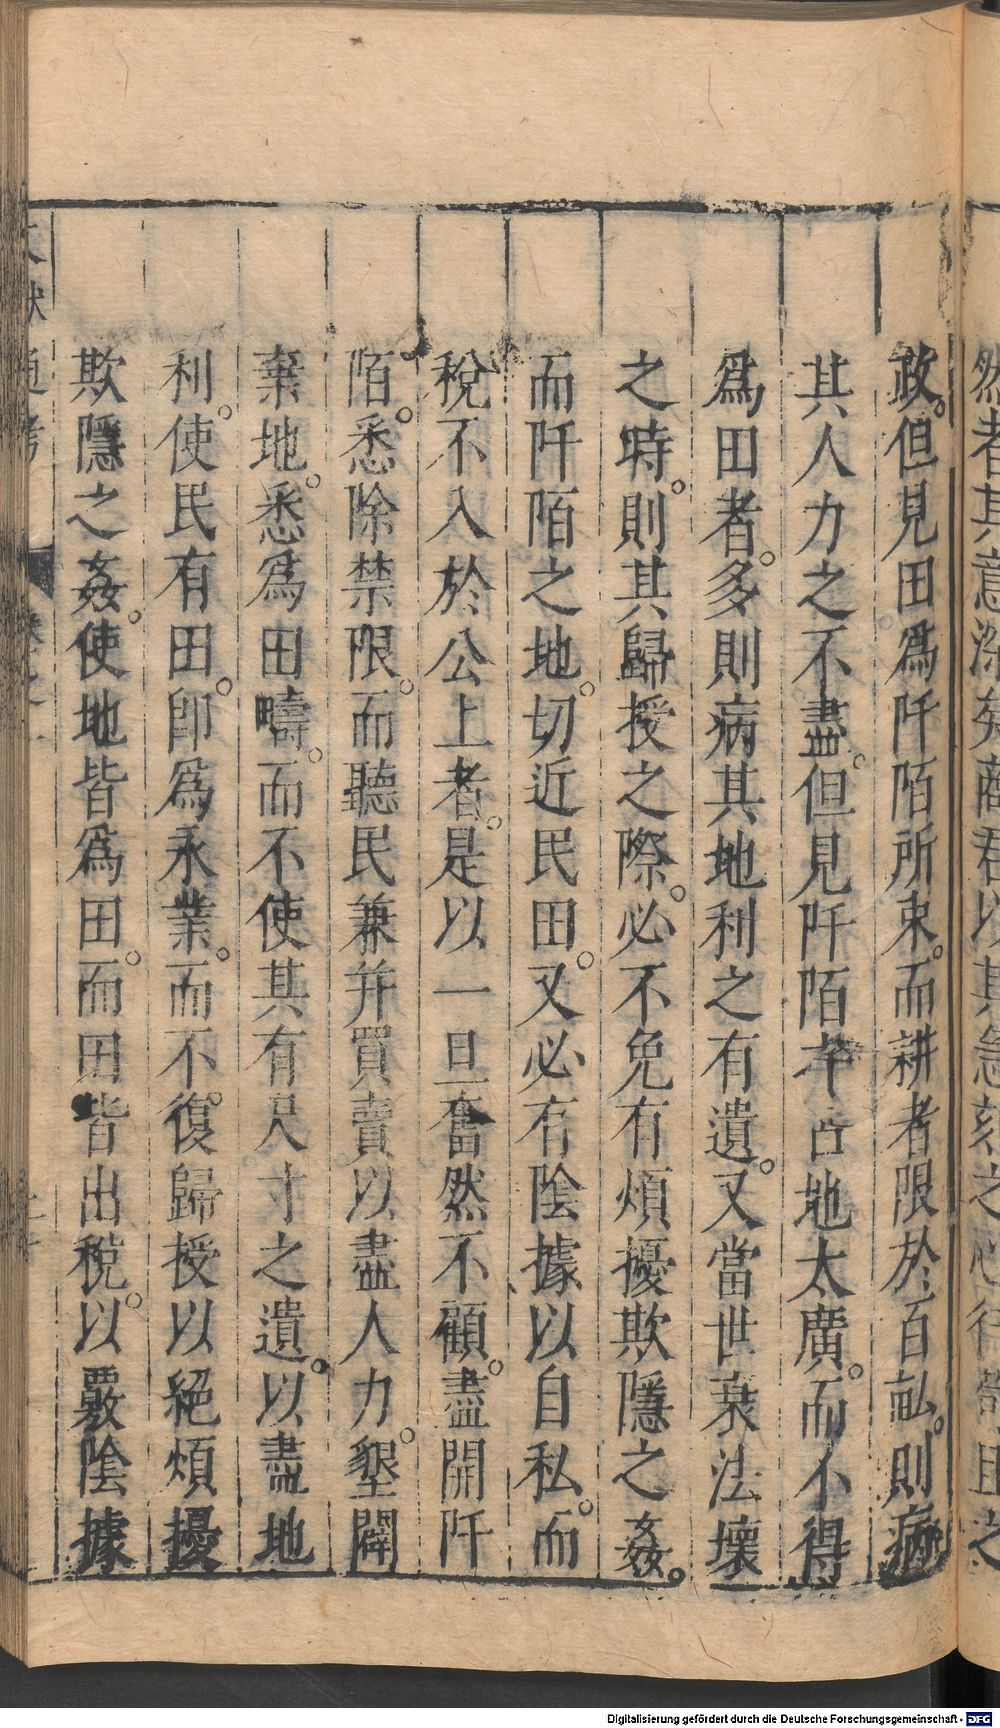 然者其意深矣商君以其急刻之心行苟且之
政。但見田爲阡陌所束。而耕者限於百畝。則病
其人力之不盡。但見阡陌之占地太廣。而不得
爲田者。多則病其地利之有遺。又當世衰法壞
之時。則其歸授之際。必不免有煩擾欺隱之姦。
而阡陌之地。切近民田。又必有陰據以自私。而
稅不入於公上者。是以一旦奮然不顧。盡開阡
陌。悉除禁限。而聽民兼并買賣以盡人力。墾闢
棄地。悉爲田疇。而不使其有尺寸之遺。以盡地
利。使民有田。卽爲永業。而不。復歸授以絕煩擾
欺隱之姦。使地皆爲田。而田皆出稅。以覈陰據
通考
Digitalisierung gefördert durch die Deutsche Forschungsgemeinschaft - DFG